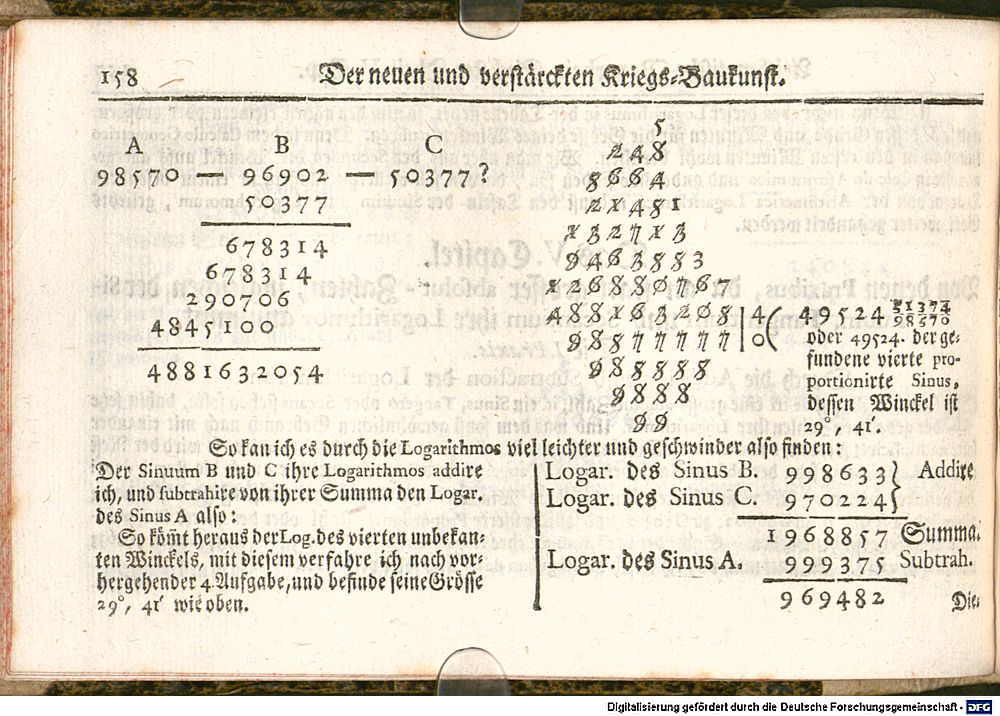 158 Der neuen und verstärckten Kriegs-Baukunst.
A B C
98570 — 96902 — 50377?
50377
678314
678314
290706
4845100
4881632054
5
248
8664
21481
132713
9463883
126880767
488163208 | 4 ( 49524 51374/98570
988777777 | 0
988888
9888
99
oder 49524. der ge-
fundene vierte pro-
portionirte Sinus,
dessen Winckel ist
29°, 41′.
So kan ich es durch die Logarithmos viel leichter und geschwinder also finden:
Der Sinuum B und C ihre Logarithmos addire
ich, und subtrahire von ihrer Summa den Logar.
des Sinus A also:
So kömt heraus der Log. des vierten unbekan-
ten Winckels, mit diesem verfahre ich nach vor-
hergehender 4. Aufgabe, und befinde seine Grösse
29°, 41′ wie oben.
Logar. des Sinus B. 998633 } Addire
Logar. des Sinus C. 970224 }
1968857 Summa.
Logar. des Sinus A. 999375 Subtrah.
969482
Die
Digitalisierung gefördert durch die Deutsche Forschungsgemeinschaft - DFG